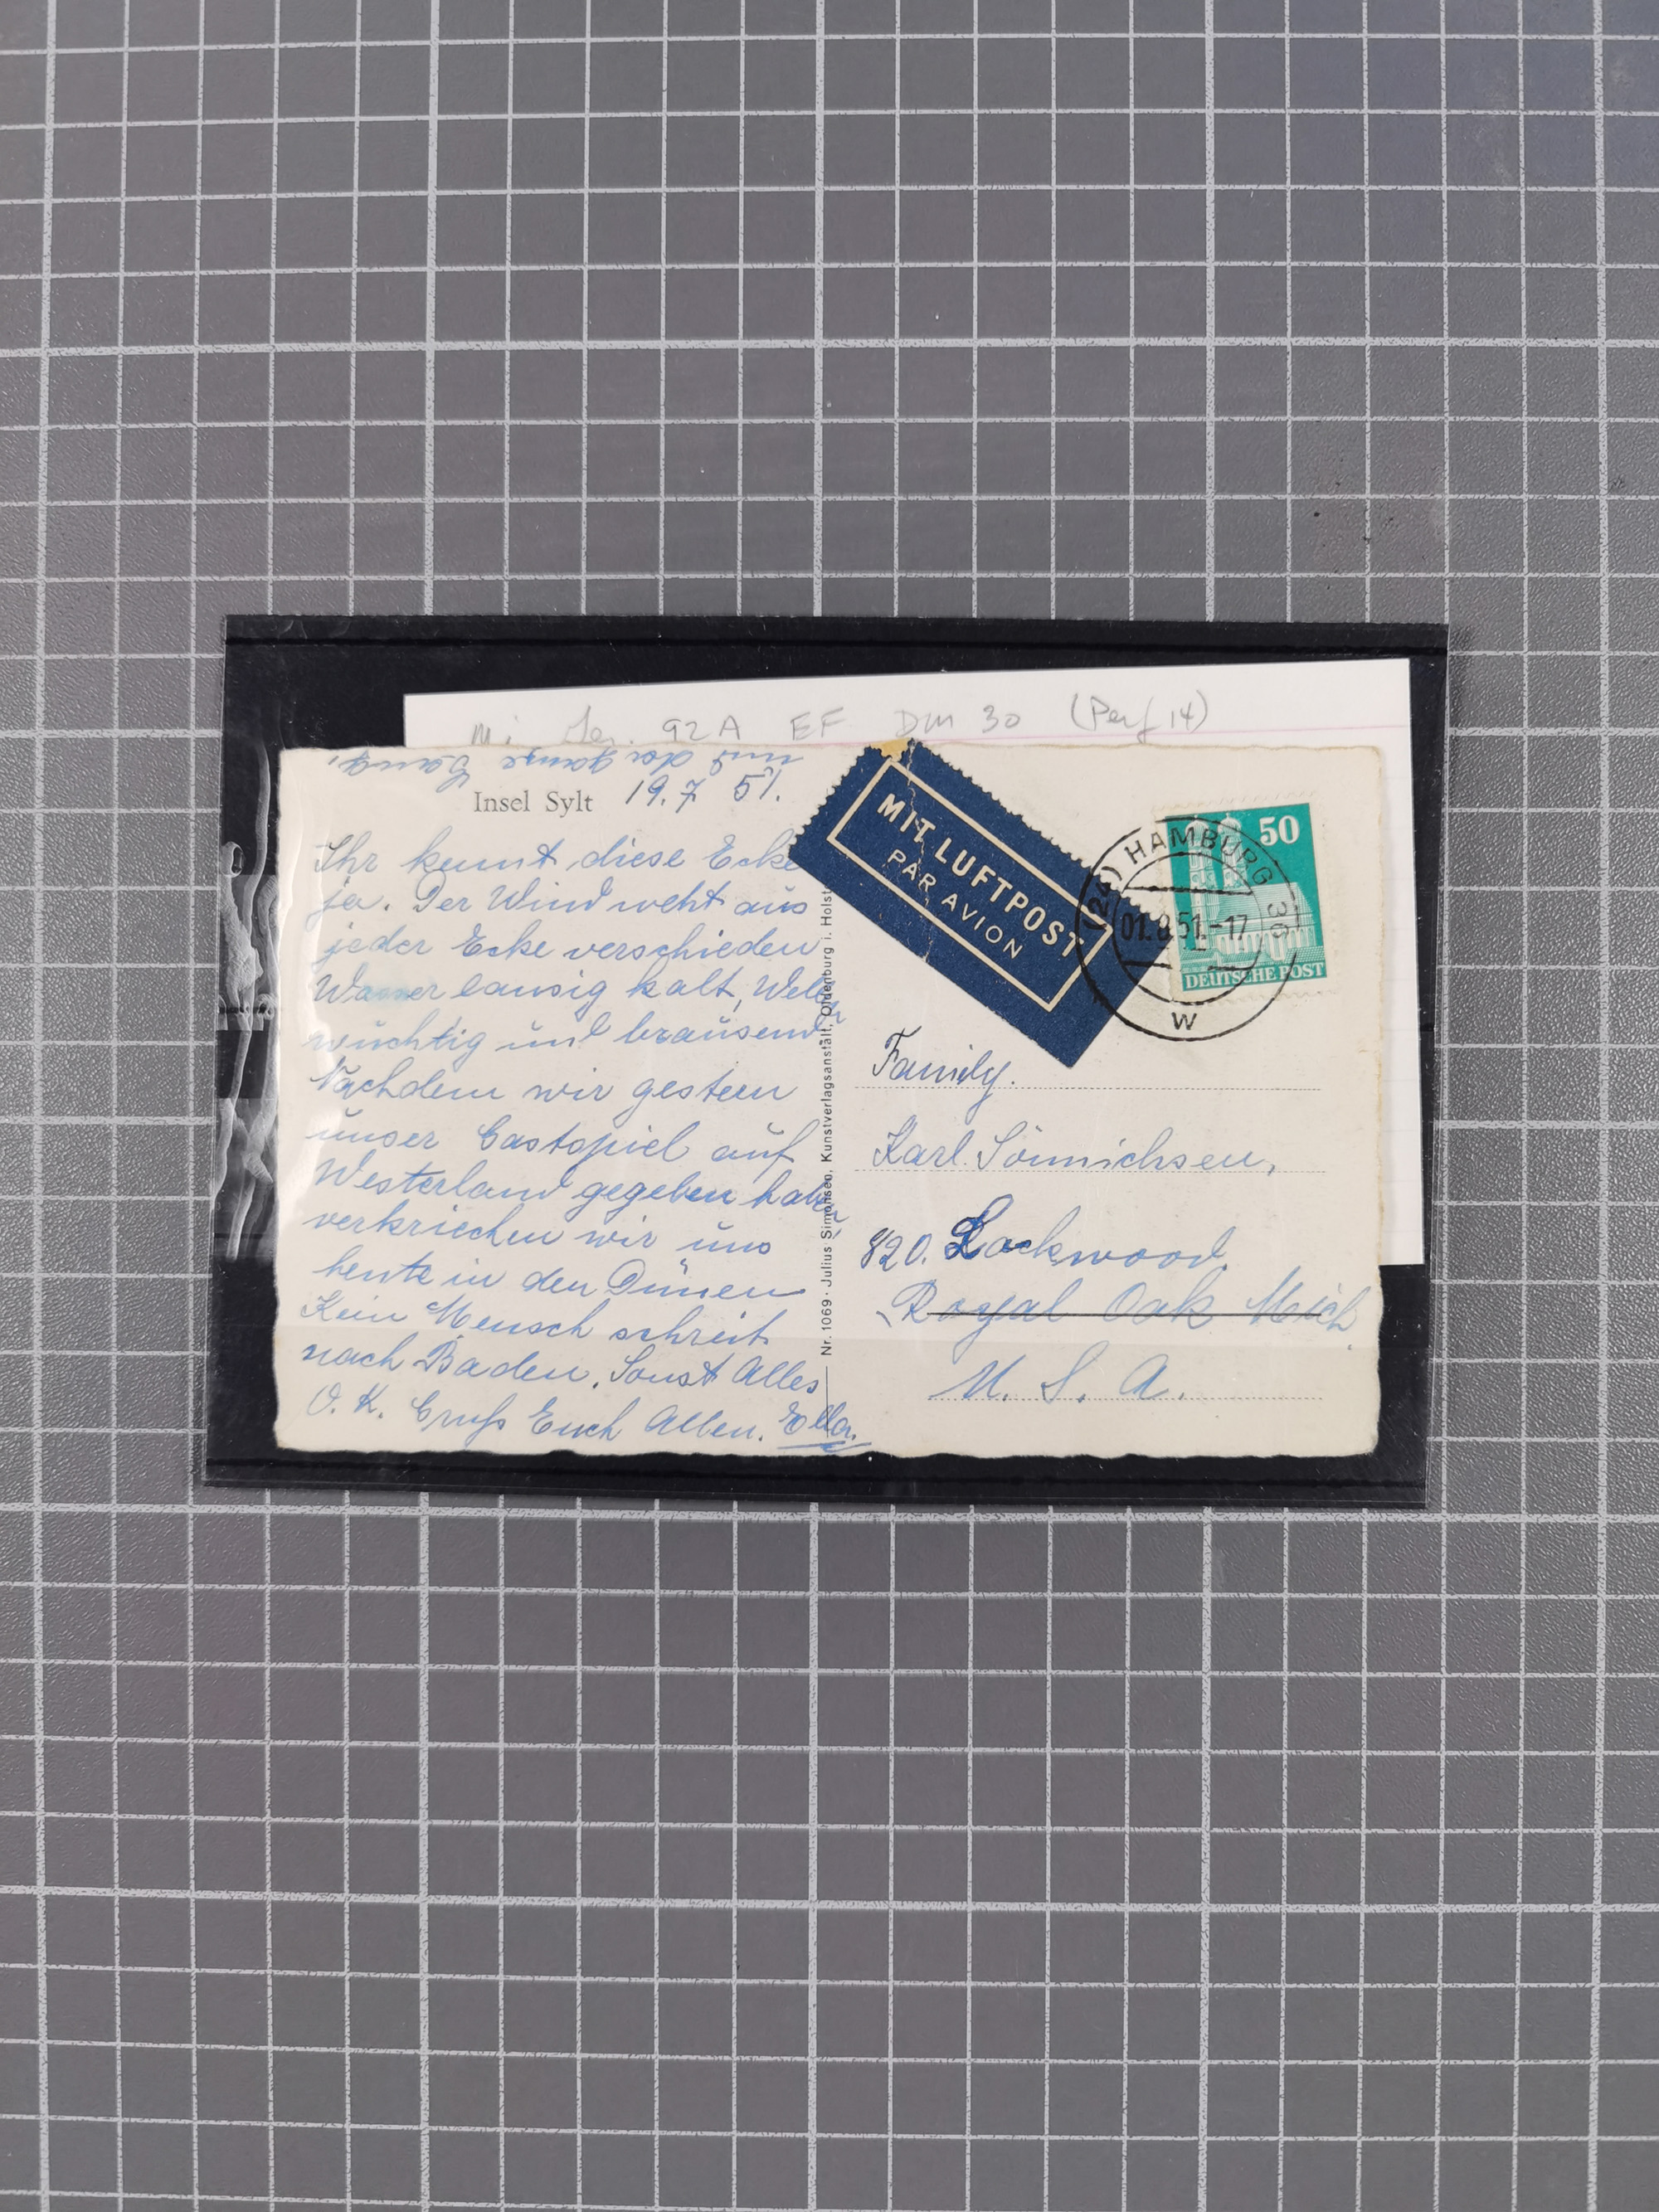 Mi 92A EF DM 30 (Perf 14)
und der ganze
Insel Sylt 19.7 51.
Ihr kennt diese Ecke
ja. Der Wind weht aus
jeder Ecke verschieden
Wasser lausig kalt, Wellen
wuchtig und brausend
Nachdem wir gestern
unser Gastspiel auf
Westerland gegeben haben
verkriechen wir uns
heute in den Dünen
Kein Mensch schreit
nach Baden. Sonst Alles
O. K. Gruß Euch Allen. Ella.
Nr. 1069 · Julius Simonsen, Kunstverlagsanstalt, Oldenburg i. Holst
MIT LUFTPOST
PAR AVION
(24) HAMBURG 36
01.8.51.-17
W
50
DEUTSCHE POST
Family.
Karl Sönnichsen,
820. Lockwood.
Royal Oak Mich.
U. S. A.